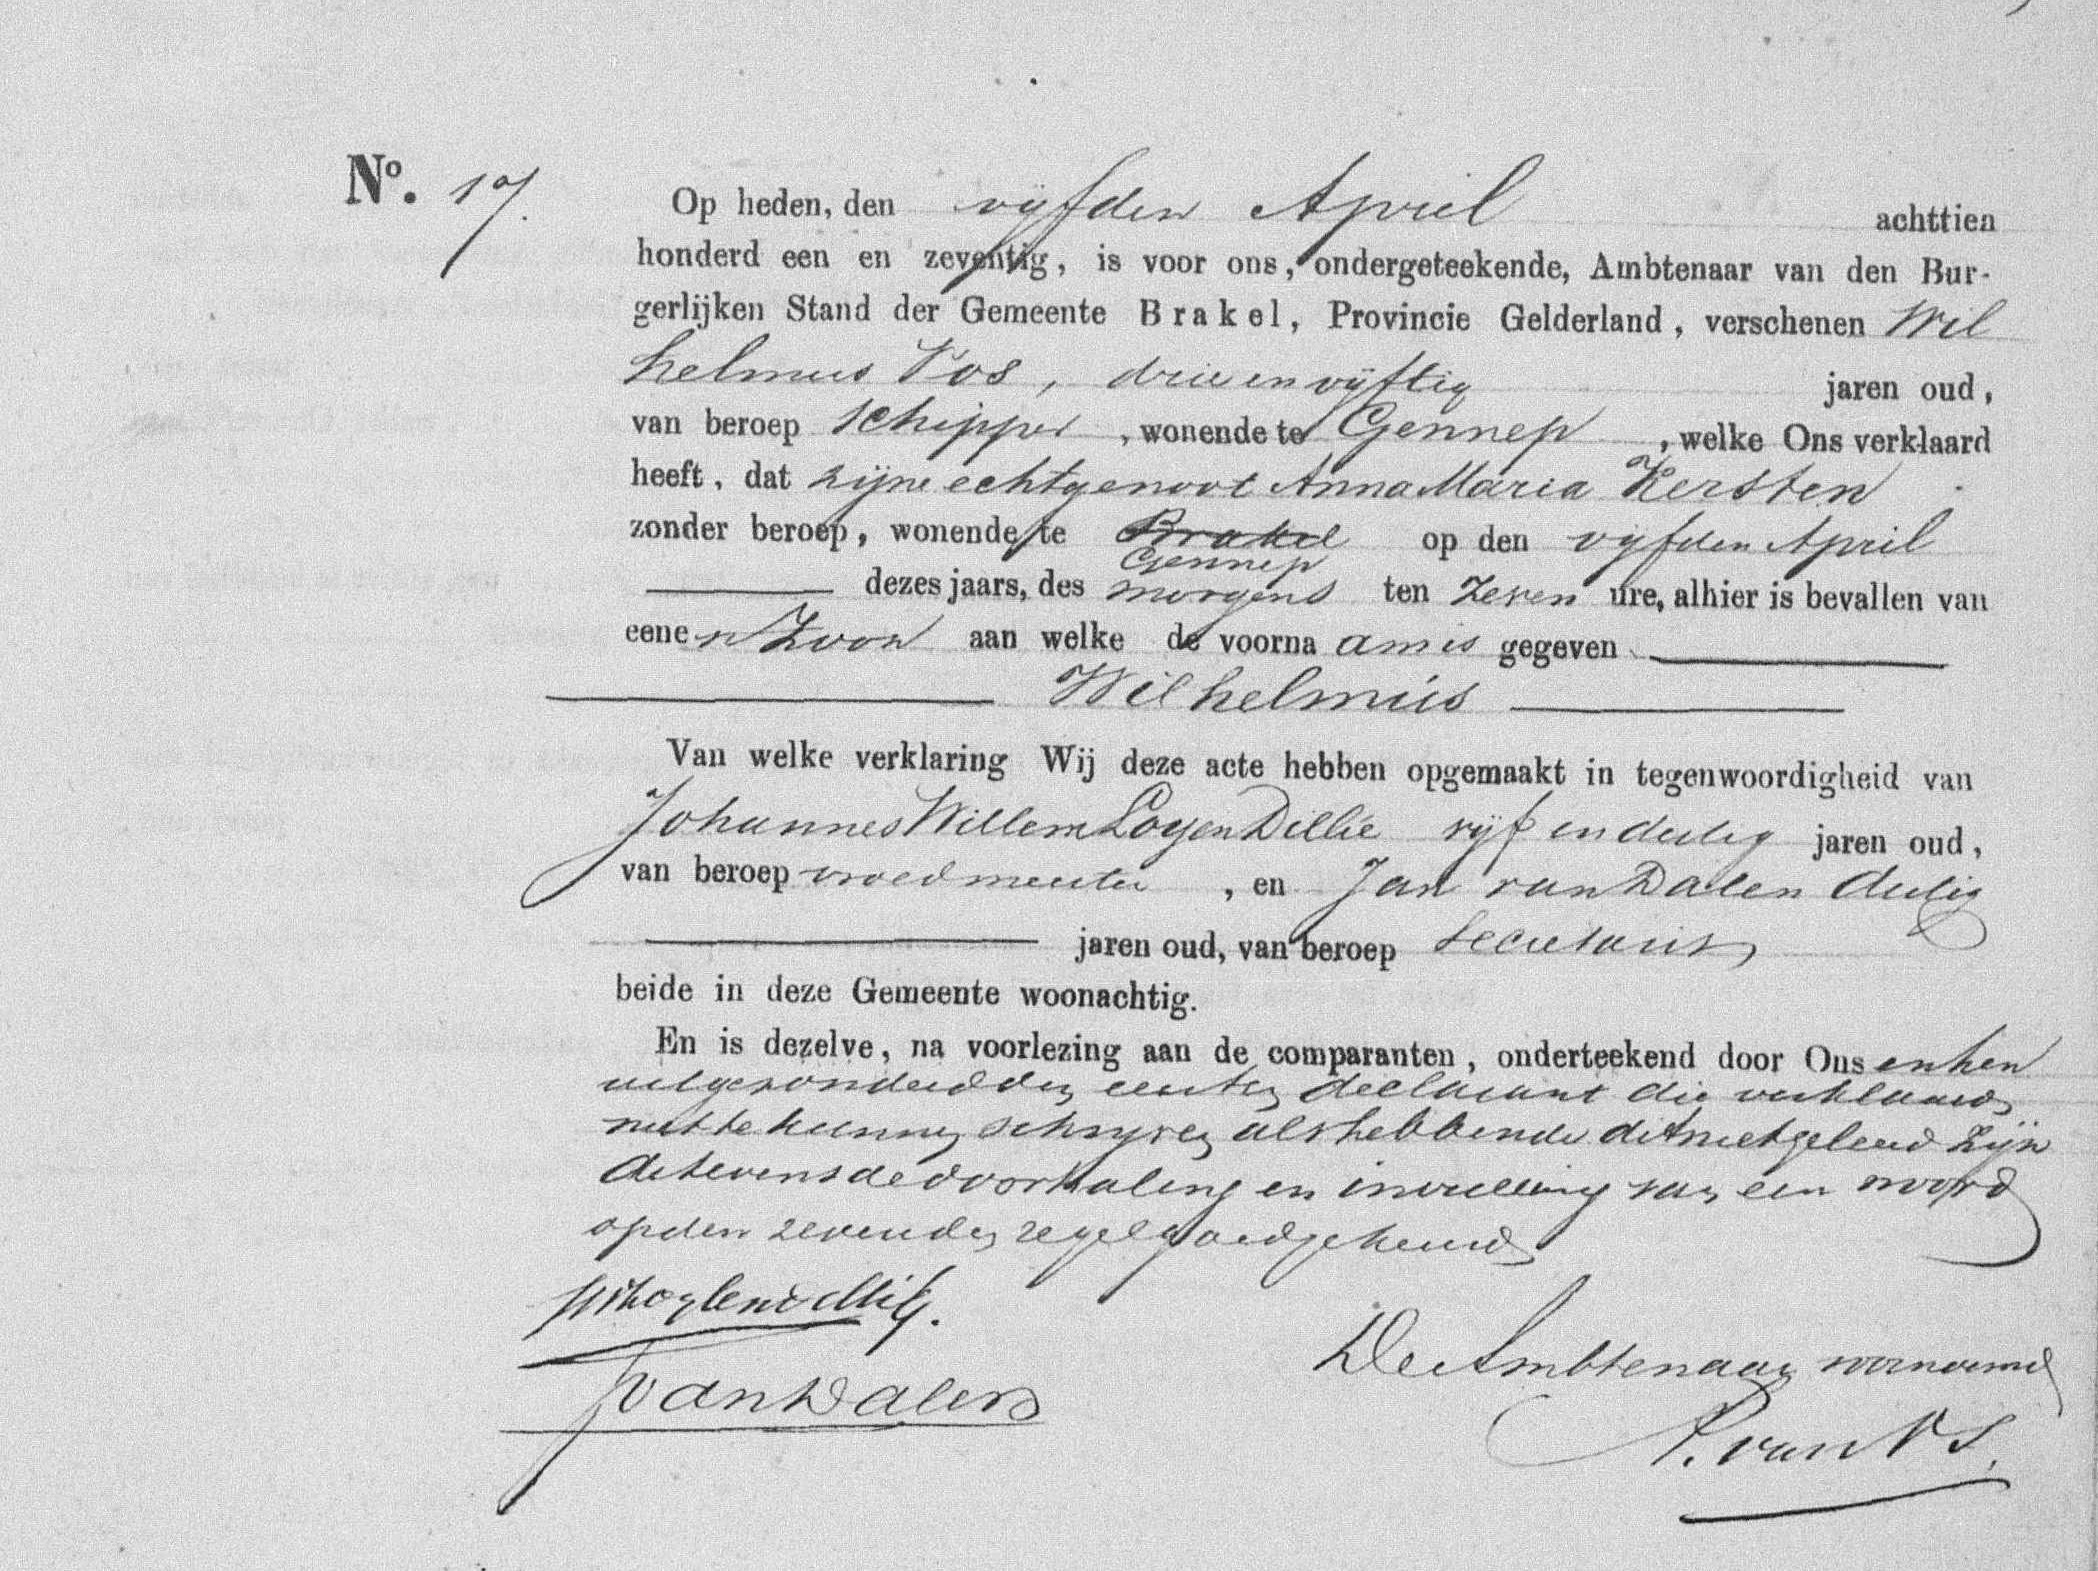 Nº. 17.
Op heden, den vijfden April achttien
honderd een en zeventig, is voor ons, ondergeteekende, Ambtenaar van den Bur-
gerlijken Stand der Gemeente Brakel, Provincie Gelderland, verschenen Wil
helmus Vos, drie en vijftig jaren oud,
van beroep schipper, wonende te Gennep, welke Ons verklaard
heeft, dat zijne echtgenoot Anna Maria Kersten
zonder beroep, wonende te Brakel op den vijfden April
Gennep
dezes jaars, des morgens ten zeven ure, alhier is bevallen van
eenen Zoon aan welke de voorna am is gegeven
Wilhelmus
Van welke verklaring Wij deze acte hebben opgemaakt in tegenwoordigheid van
Johannes Willem Dillié vijf en dertig jaren oud,
van beroep vroedmeester, en Jan van Dalen dertig
jaren oud, van beroep secretaris
beide in deze Gemeente woonachtig.
En is dezelve, na voorlezing aan de comparanten, onderteekend door Ons en hen
uitgezonderd den eersten declarant die verklaarde
niet te kunnen schrijven als hebbende dit niet geleerd zijn
de tevens de doorhaling en invulling van een woord
op den zevenden regel goedgekeurd
JvanDalen
De Ambtenaar voornoemd
P. van